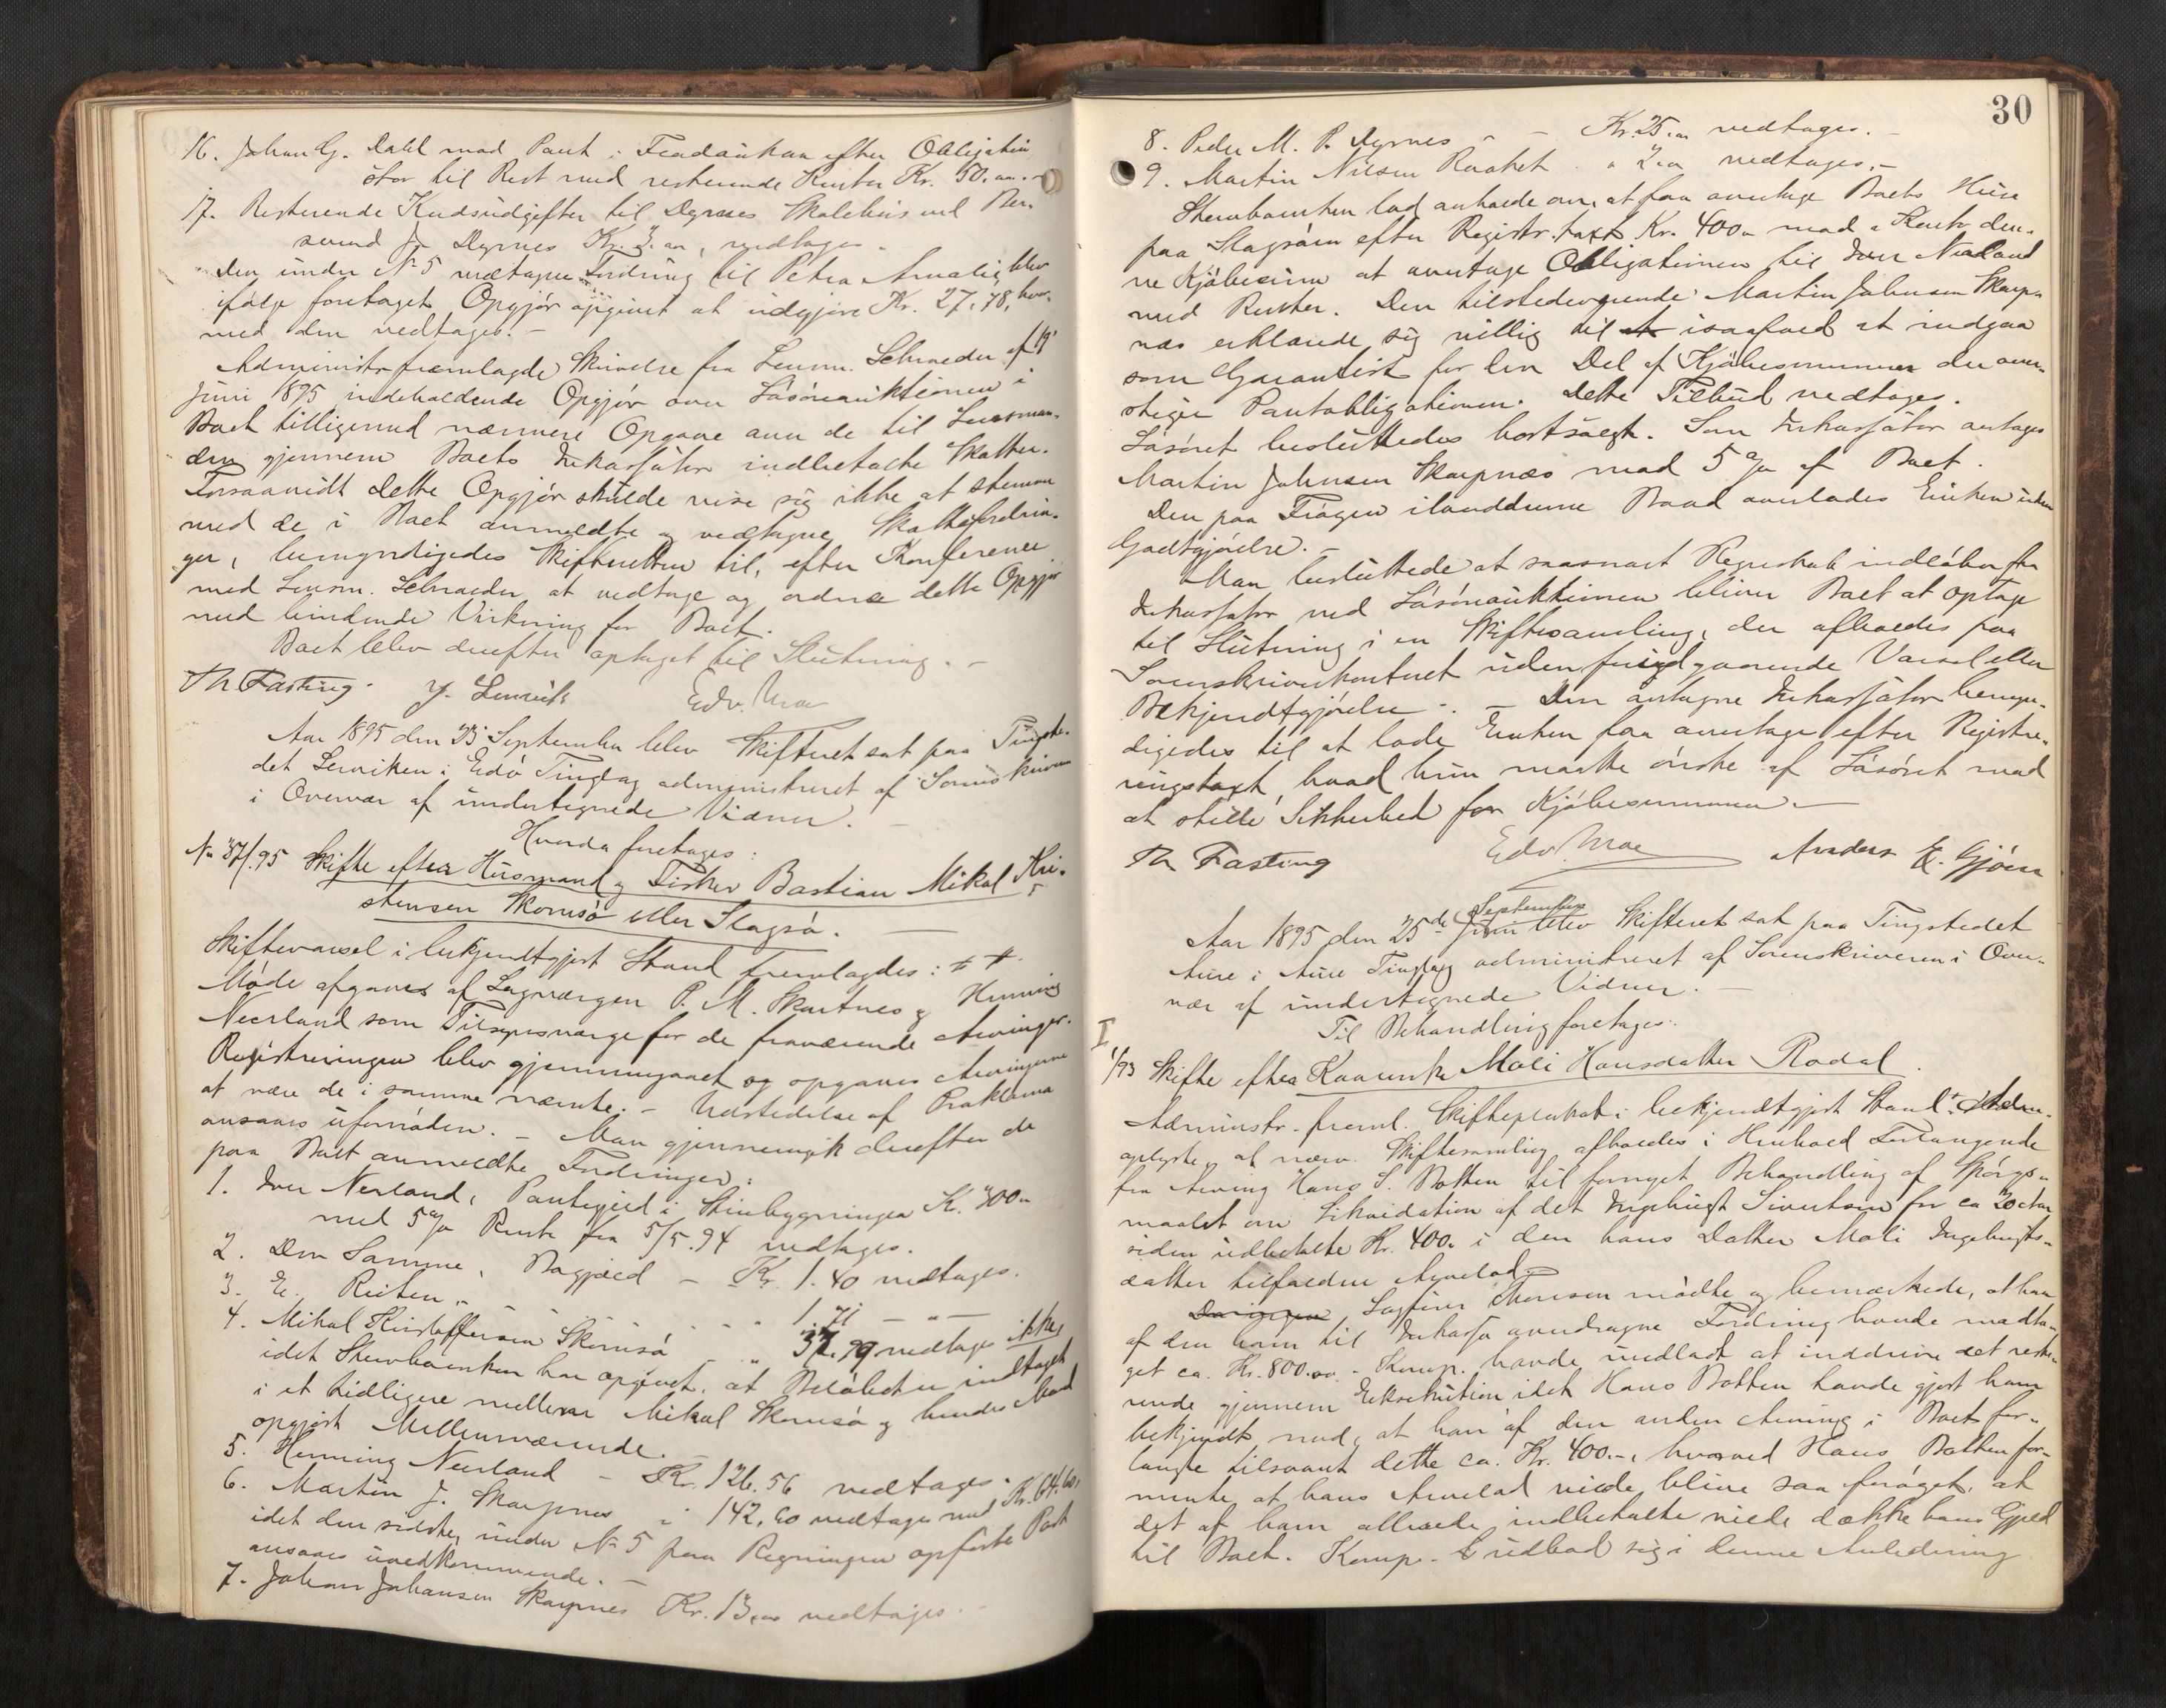 16. Johan G. Dahl mod Pant i Fredviken efter Obligation
stor til Rest med resterende Renter Kr. 50.00.
17. Resterende Kudsudgifter til Dyrnes Skolehus ved Ber-
nund J. Dyrnes Kr. 3.00, vedtages.
Den under No 5 vedtagne Fordring til Petra Amalie blev
ifølge foretaget Opgjør opgivet at udgjøre Kr. 27,78, hvor-
med den vedtages. -
Administr. fremlagde Skrivelse fra Lensm. Schrøder af 19
Juni 1895 indeholdende Opgjør over Løsøreauktionen i
Boet tilligemed nærmere Opgave over de til Lensman-
den gjennem Boets Inkassator indbetalte Skatter.
Forsaavidt dette Opgjør skulde vise sig ikke at stemme
med de i Boet anmeldte og vedtagne Skattefordrin-
ger, bemyndigedes Skifteretten til, efter Konference
med Lensm. Schrøder, at vedtage og ordne dette Opgjør
med bindende Virkning for Boet.
Boet blev derefter optaget til Slutning. -
Th Fasting. J. Lervik Edv. Moe
Aar 1895 den 23 September blev Skifteret sat paa Tingste-
det Lerviken i Edø Tinglag administreret af Sorenskriveren
i Overvær af undertegnede Vidner. -
Hvorda foretages:
No 37/95 Skifte efter Husmand og Fisker Bastian Mikal Kri-
stensen Skomsø eller Slagsø. -
Skiftevarsel i bekjendtgjort Stand fremlagdes: # #.
Møde afgaves af Lagværgen P. M. Skartnes og Henning
Neerland som Tilsynsværge for de fraværende Arvinger.
Registreringen blev gjennemgaaet og opgaves Arvingerne
at være de i samme nævnte. - Udstedelse af Proklama
ansaaes ufornøden. - Man gjennemgik derefter de
paa Boet anmeldte Fordringer:
1. Iver Nerland, Pantegjæld i Stuebygningen Kr. 400.
med 5 % Rente fra 5/5. 94 vedtages.
2. Den Samme, Boggjæld - Kr. 1.40 vedtages.
3. E. Reiten, - - - - 1.71 - " -
4. Mikal Kristoffersen Skomsø - " 37.79 vedtages ikke
idet Stervboenken har opgivet, at Beløbet er indtaget
i et tidligere mellem Mikal Skomsø og hendes Mand
opgjort Mellemværende.
5. Henning Neerland - Kr. 126.56 vedtages.
6. Martin J. Skarpnes " 142,60 vedtages med Kr. 64.60,
idet den sidste, under No 5 paa Regningen opførte Post
ansaaes uvedkommende. -
7. Johan Johansen Skarpnes Kr. 13,00 vedtages. -
30
8. Peder M. P. Dyrnes - - Kr. 25.00 vedtages. -
9. Martin Nilsen Raaket " 2.00 vedtages. -
Stervboenken lod anholde om, at faa overtage Boets Huse
paa Slagsøen efter Registr. taxt Kr. 400. mod i Kraft den-
ne Kjøbesum at overtage Obligationen til Iver Nerland
med Renter. Den tilstedeværende Martin Johnsen Skarp-
næs erklærede sig villig til isaafald at indgaa
som Garantist for den Del af Kjøbesummen der over-
stiger Pantobligationen. Dette Tilbud vedtages.
Løsøret besluttedes bortsolgt. Som Inkassator antages
Martin Johnsen Skarpnæs mod 5 % af Boet.
Den paa Frøyen ilanddrevne Baad overlades Enken uden
Godtgjørelse. -
Man besluttede at saasnart Regnskab indløber fra
Inkassator ved Løsøreauktionen bliver Boet at optage
til Slutning i en Skiftesamling, der afholdes paa
Sorenskriverkontoret uden forudgaaende Varsel eller
Bekjendtgjørelse. - Den antagne Inkassator bemyn-
digedes til at lade Enken faa overtage efter Registre-
ringstaxt, hvad hun maatte ønske af Løsøret mod
at stille Sikkerhed for Kjøbesummen. -
Th Fasting Edv. Moe Anders E. Gjøen
Aar 1895 den 25de September Juni blev Skifteret sat paa Tingstedet
Aure i Aure Tinglag administreret af Sorenskriveren i Over-
vær af undertegnede Vidner. -
Til Behandling foretages:
I
1/93 Skifte efter Kaarenke Mali Hansdatter Rodal.
Administr. freml. Skifteplakat i bekjendtgjort Stand. # Adm.
oplyste, at nærv. Skiftesamling afholdes i Henhold Forlangende
fra Arving Hans S. Botten til fornyet Behandling af Spørgs-
maalet om Likvidation af det Ingebrigt Sivertsen for ca 20 Aar
siden udbetalte Kr. 400. i den hans Datter Mali Ingebrigts-
datter tilfaldne Arvelod.
Sagfører Thoresen mødte og bemærkede, at han
af den ham til Inkasso overdragne Fordring havde modta-
get ca. Kr. 800.00. - Komp. havde undladt at inddrive det reste-
rende gjennem Eksekution idet Hans Botten havde gjort ham
bekjendt med, at han af den anden Arving i Boet for-
langte tilsvaret dette ca. Kr. 400.-, hvorved Hans Botten for-
mente at hans Arvelod vilde blive saa forøget, at
det af ham allerede indbetalte vilde dække hans Gjæld
til Boet. Komp. udbad sig i denne Anledning